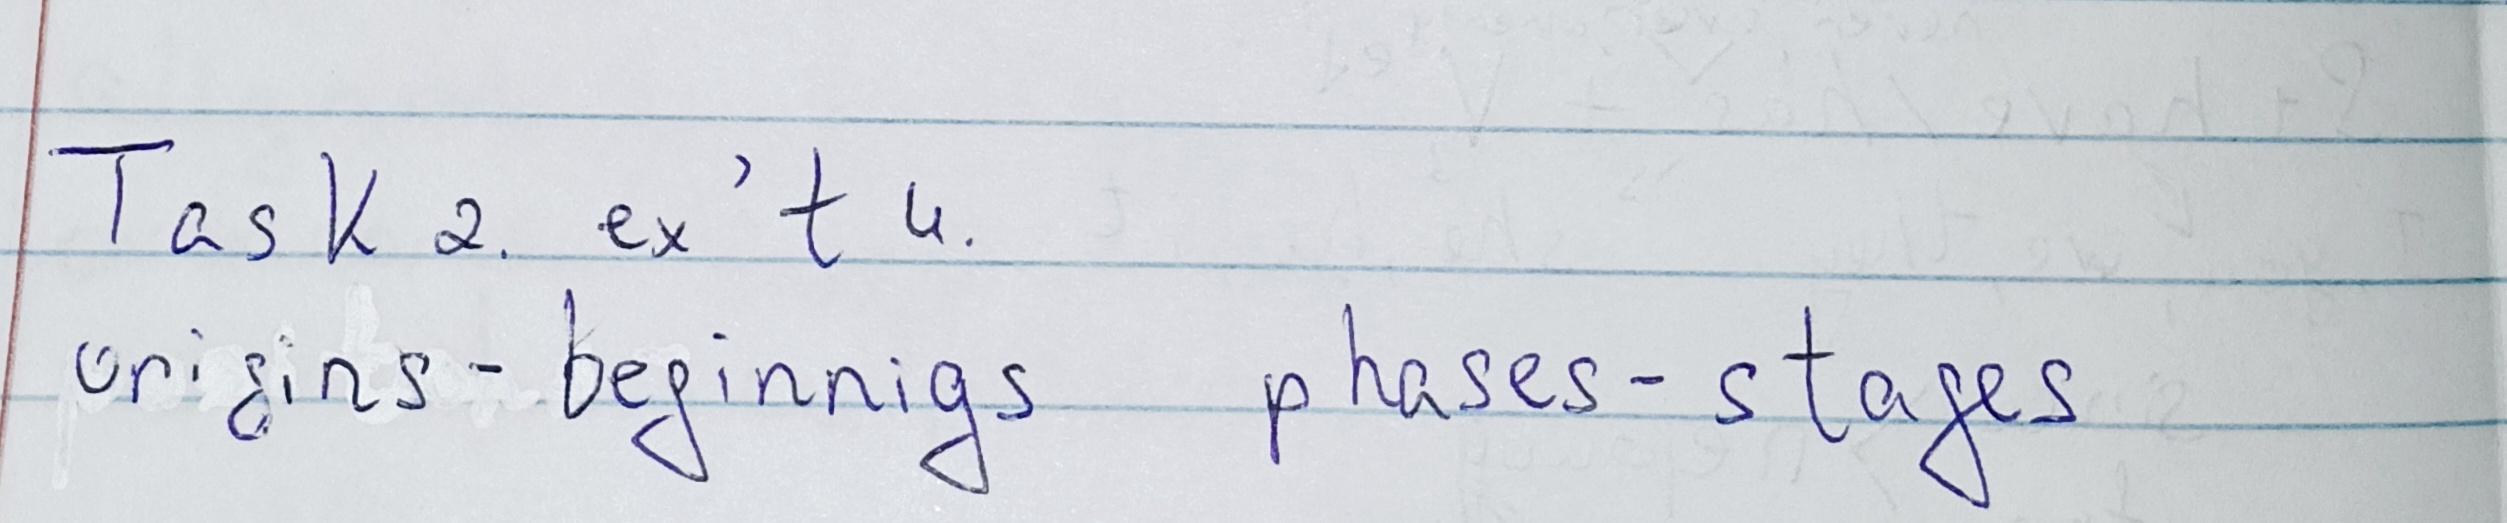 Task 2. ex't 4.
origins - beginnigs phases - stages